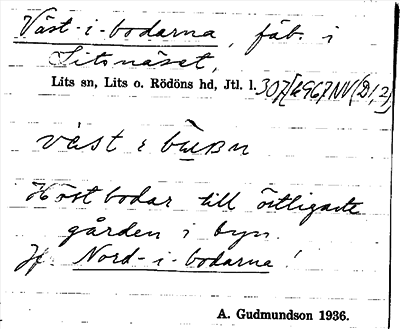 Väst-i-bodarna, fäb. i
Litsnäset,
Lits sn, Lits o. Rödöns hd, Jtl. l.
väst
Höstbodar till östligaste
gården i byn.
Jf. Nord-i-bodarna!
A. Gudmundson 1936.